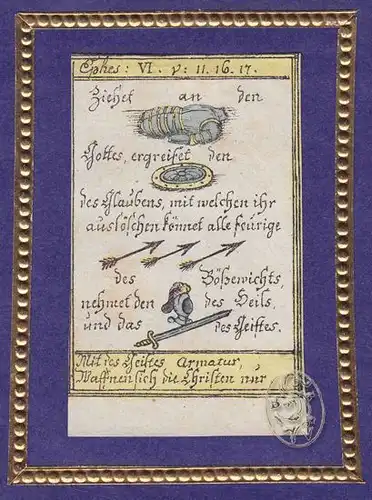 Ephes: VI. v: 11. 16. 17.
Ziehet an den
Gottes, ergreifet den
des Glaubens, mit welchen ihr
auslöschen könnet alle feurige
des Bößewichts,
nehmet den des Heils,
und das des Geistes.
Mit des Geistes Armatur,
Waffnen sich die Christen nur